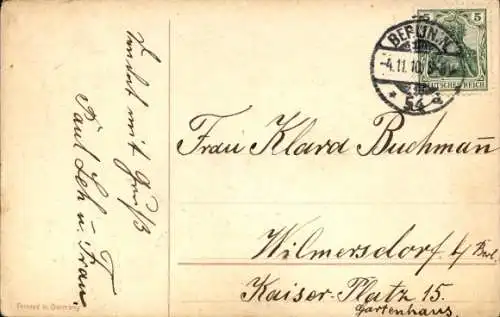 Sendet mit Gruß
Paul Leh u. Frau.
5 5
BERLIN. N.
4.11.10.
DEUTSCHES REICH
* 54 d
Frau Klara Buchman̄
Wilmersdorf b/ Berl.
Kaiser-Platz 15.
Gartenhaus
Printed in Germany